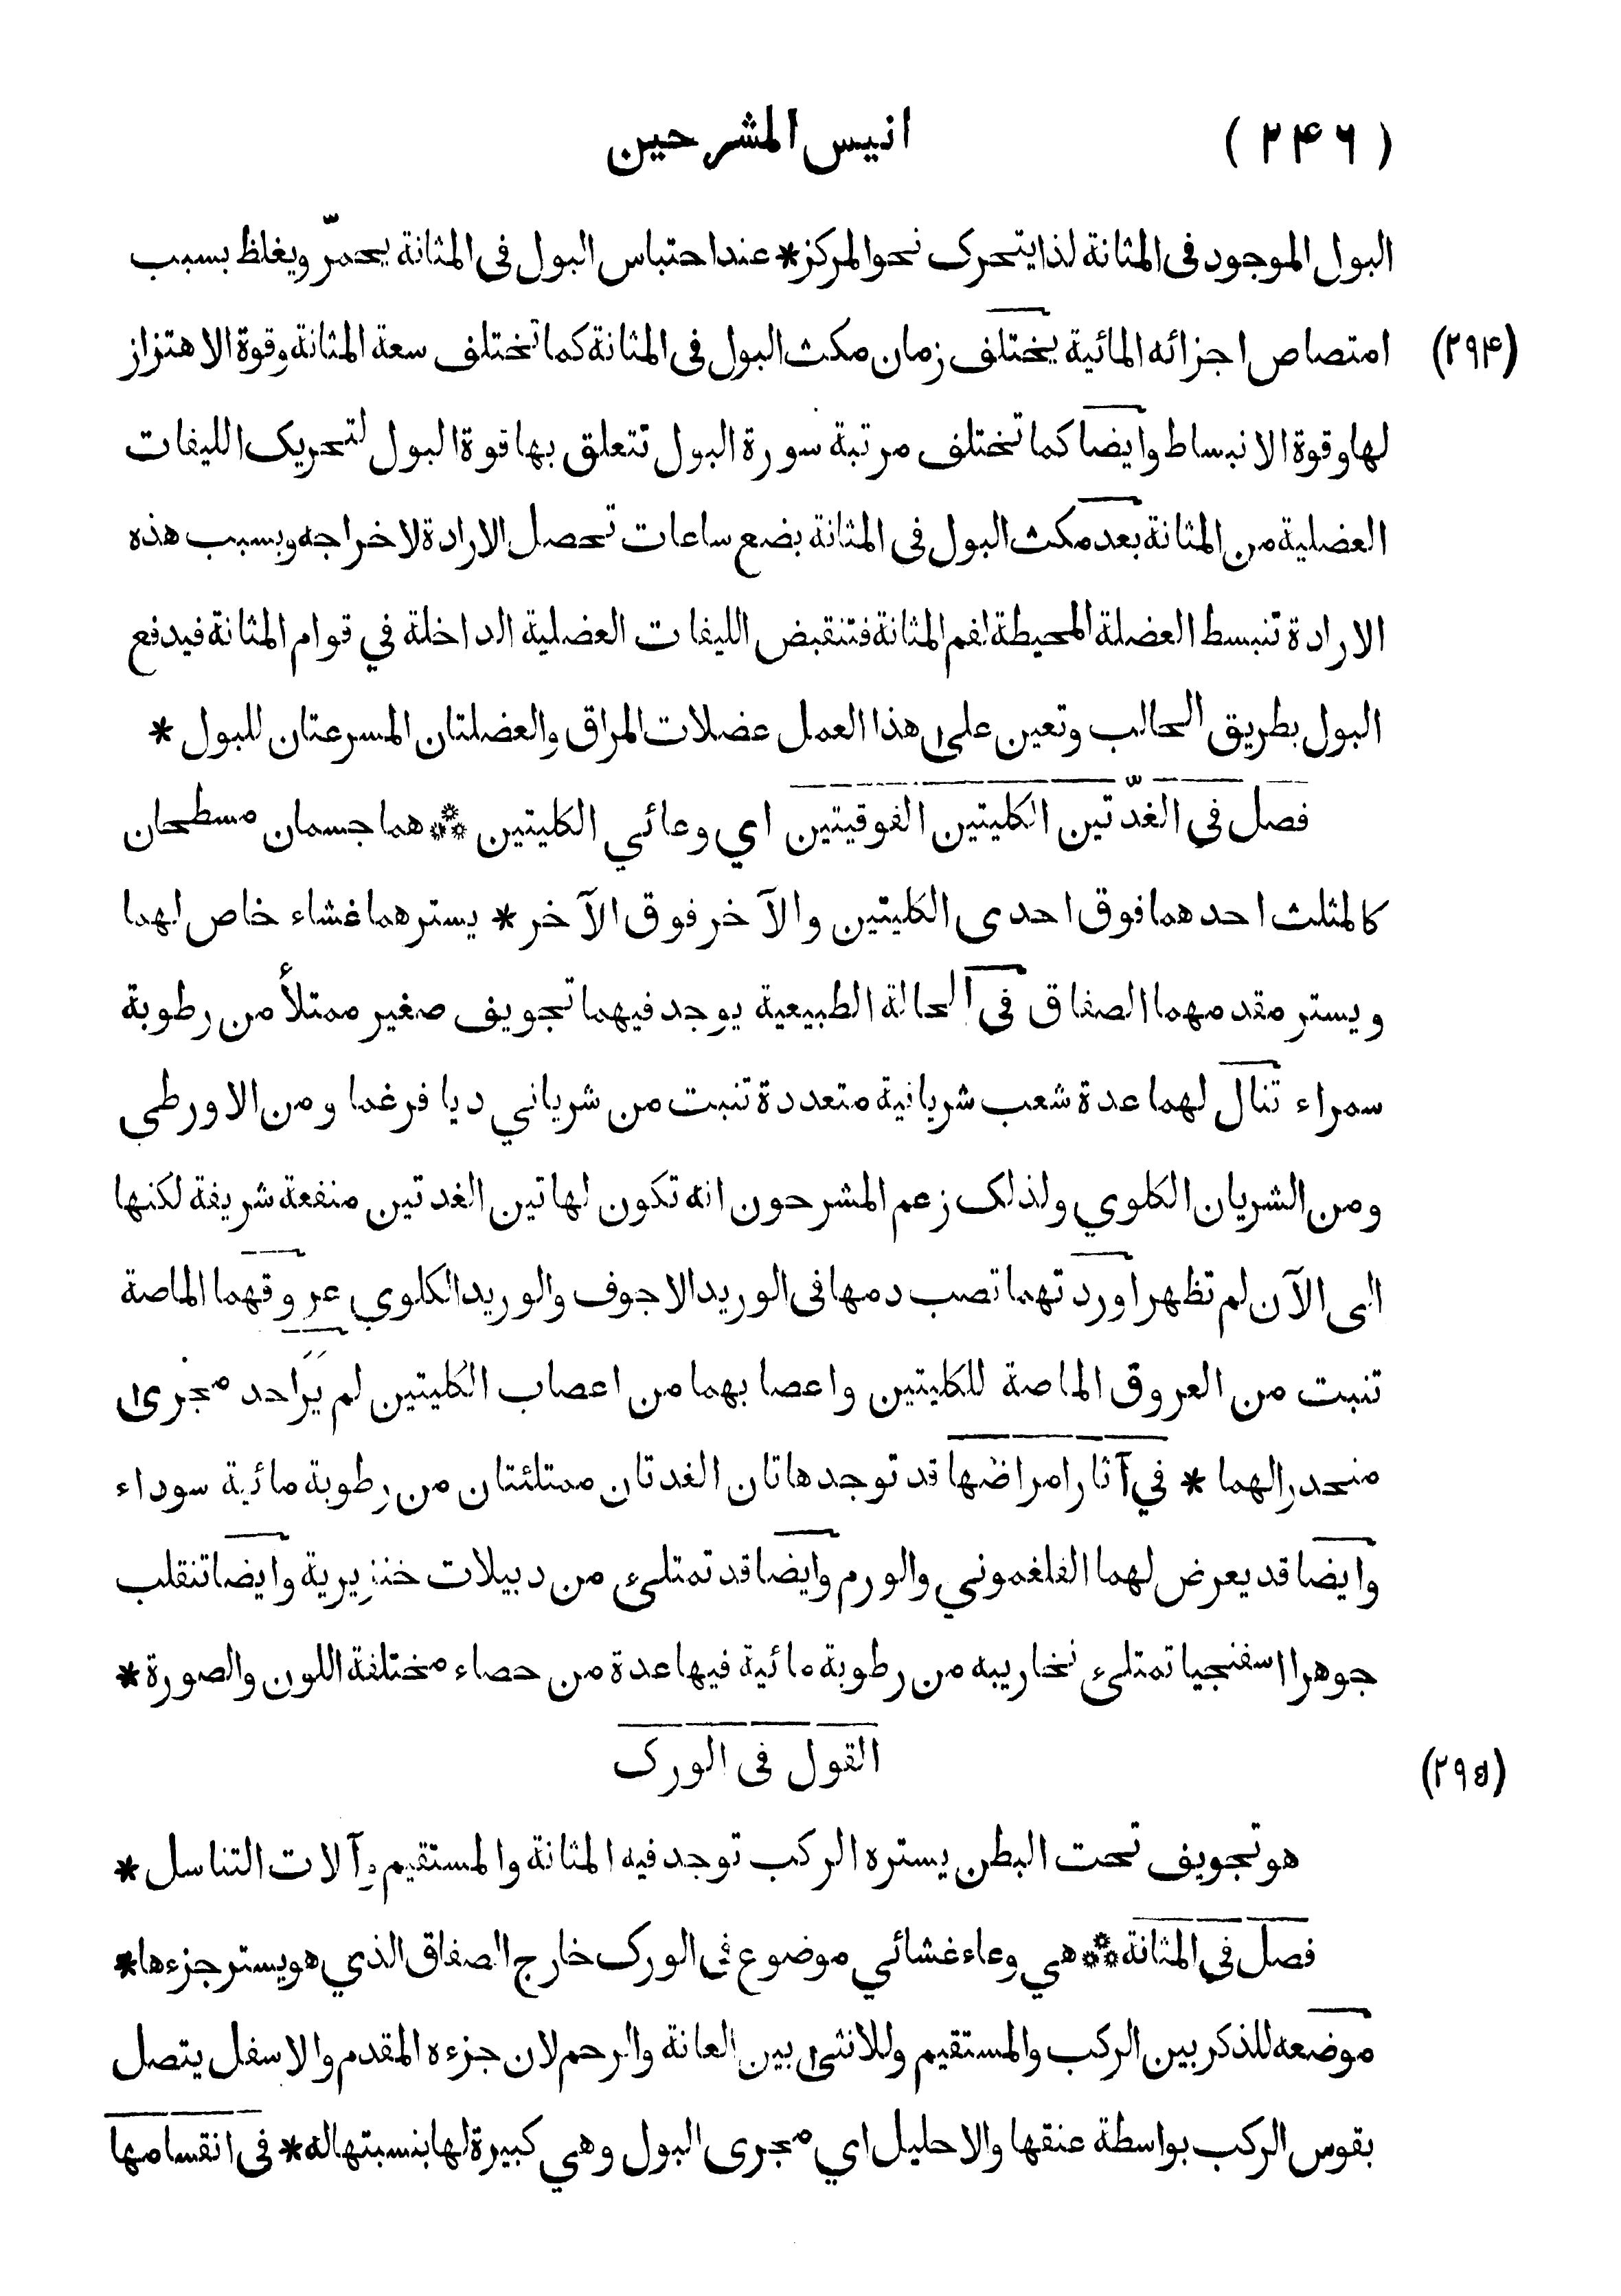 (٢۴٦) انيس المشرحين
البول الموجود فى المثانة لذا يتحرك نحو المركز * عند احتباس البول فى المثانة يحمرّ ويغلظ بسبب
(٢٩۴) امتصاص اجزائه المائية يختلف زمان مكث البول فى المثانة كما تختلف سعة المثانة وقوة الاهتزاز
لها وقوة الانبساط وايضا كما تختلف مرتبة سورة البول تتعلق بها قوة البول لتحريك الليفات
العضلية من المثانة بعد مكث البول فى المثانة بضع ساعات تحصل الارادة لاخراجه وبسبب هذه
الارادة تنبسط العضلة المحيطة لفم المثانة فتنقبض الليفات العضلية الداخلة في قوام المثانة فيدفع
البول بطريق الحالب وتعين على هذا العمل عضلات المراق والعضلتان المسرعتان للبول *
فصل فى الغدّتين الكليتين الفوقيتين اي وعائي الكليتين ⁂ هما جسمان مسطحان
كالمثلث احدهما فوق احدى الكليتين والآخر فوق الآخر * يسترهما غشاء خاص لهما
ويستر مقدمهما الصفاق فى الحالة الطبيعية يوجد فيهما تجويف صغير ممتلأ من رطوبة
سمراء تنال لهما عدة شعب شريانية متعددة تنبت من شرياني ديا فرغما ومن الاورطي
ومن الشريان الكلوي ولذلك زعم المشرحون انه تكون لهاتين الغدتين منفعة شريفة لكنها
الى الآن لم تظهر اوردتهما تصب دمها فى الوريد الاجوف والوريد الكلوي عروقهما الماصة
تنبت من العروق الماصة للكليتين واعصابهما من اعصاب الكليتين لم يَرَ احد مجرى
منحدر الهما * في آثار امراضها قد توجد هاتان الغدتان ممتلئتان من رطوبة مائية سوداء
وايضا قد يعرض لهما الفلغموني والورم وايضا قد تمتلىء من دبيلات خنزيرية وايضا تنقلب
جوهرا اسفنجيا تمتلىء نخاريبه من رطوبة مائية فيها عدة من حصاء مختلفة اللون والصورة *
القول فى الورك
(٢٩۵)
هو تجويف تحت البطن يستره الركب توجد فيه المثانة والمستقيم وآلات التناسل *
فصل في المثانة ⁂ هي وعاء غشائي موضوع فى الورك خارج الصفاق الذي هو يستر جزءها *
موضعه للذكر بين الركب والمستقيم وللانثى بين العانة والرحم لان جزءه المقدم والاسفل يتصل
بقوس الركب بواسطة عنقها والاحليل اي مجرى البول وهي كبيرة لها بنسبتها له * فى انقسامها